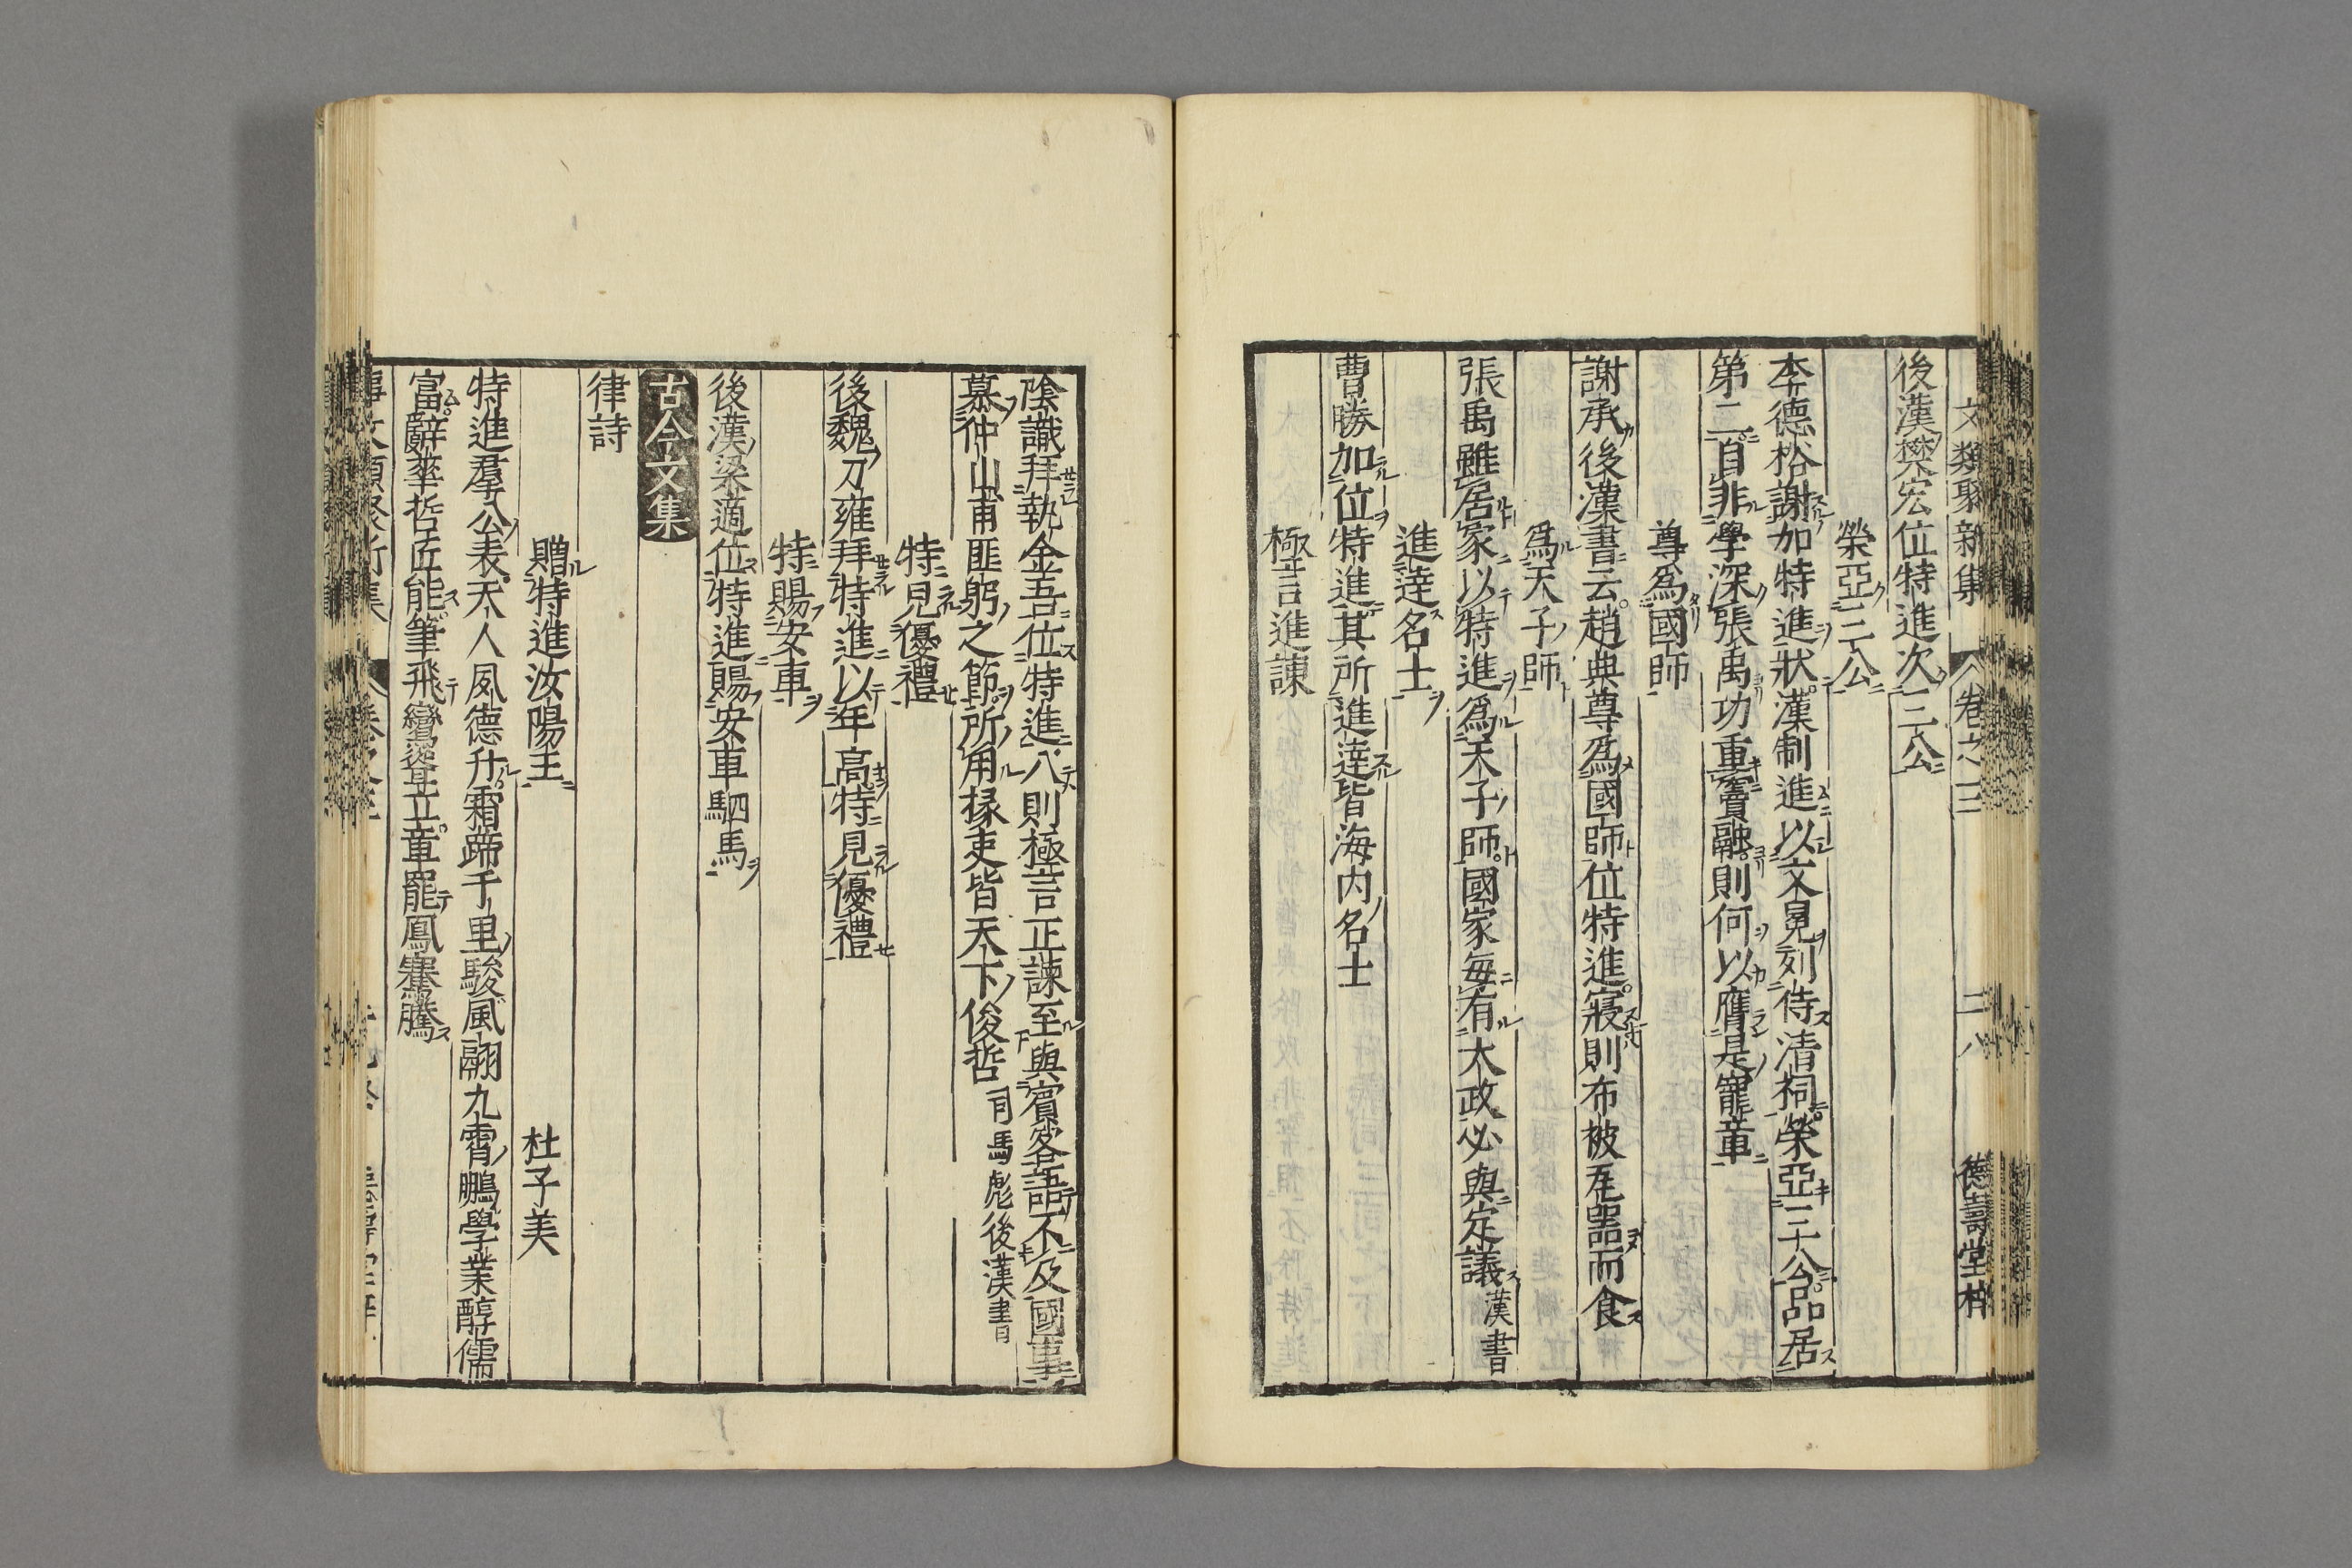 文類聚新集 卷之三 二八 德壽堂梓
後漢樊宏位特進次三公
榮亞三公
李德裕謝加特進狀漢制進以文冕列侍清祠榮亞三公品居
第二自非學深張禹功重竇融則何以膺是寵章
尊爲國師
謝承後漢書云趙典尊爲國師位特進寢則布被瓦器而食
爲天子師
張禹雖居家以特進爲天子師國家每有大政必與定議漢書
進達名士
曹勝加位特進其所進達皆海内名士
極言進諫
陰識拜執金吾位特進入則極言正諫至與賓客語不及國事
慕仲山甫匪躬之節所用掾吏皆天下俊哲司馬彪後漢書
特見優禮
後魏刀雍拜特進以年高特見優禮
特賜安車
後漢梁適位特進賜安車駟馬
古今文集
律詩
贈特進汝陽王 杜子美
特進羣公表天人夙德升霜蹄千里駿風翮九霄鵬學業醇儒
富辭華哲匠能筆飛鸞聳立章罷鳳騫騰